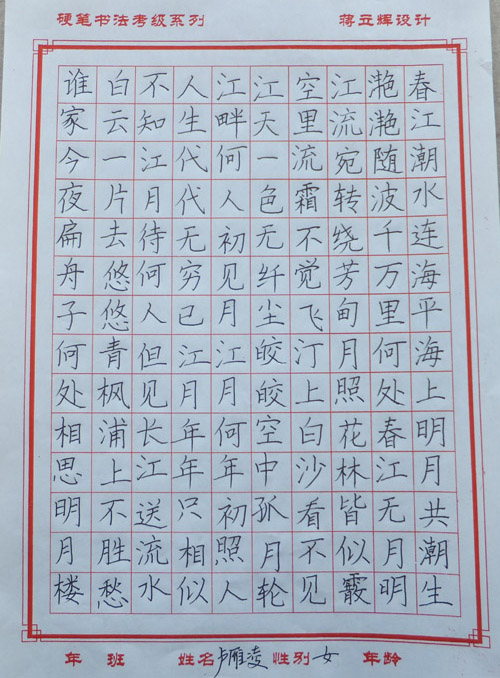 硬笔书法考级系列 蒋立辉设计
春江潮水连海平海上明月共潮生
滟滟随波千万里何处春江无月明
江流宛转绕芳甸月照花林皆似霰
空里流霜不觉飞汀上白沙看不见
江天一色无纤尘皎皎空中孤月轮
江畔何人初见月江月何年初照人
人生代代无穷已江月年年只相似
不知江月待何人但见长江送流水
白云一片去悠悠青枫浦上不胜愁
谁家今夜扁舟子何处相思明月楼
年 班 姓名 卢 凌 性别 女 年龄